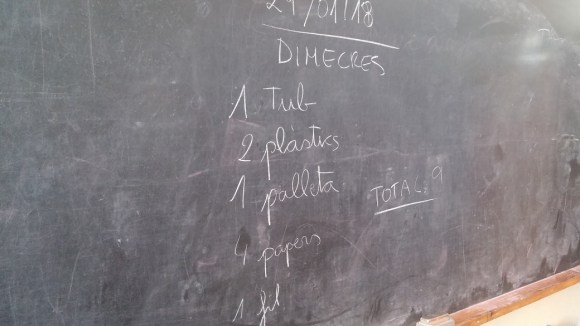 24/01/18
DIMECRES
1 Tub
2 plàstics
1 palleta
TOTAL: 9
4 papers
1 fil